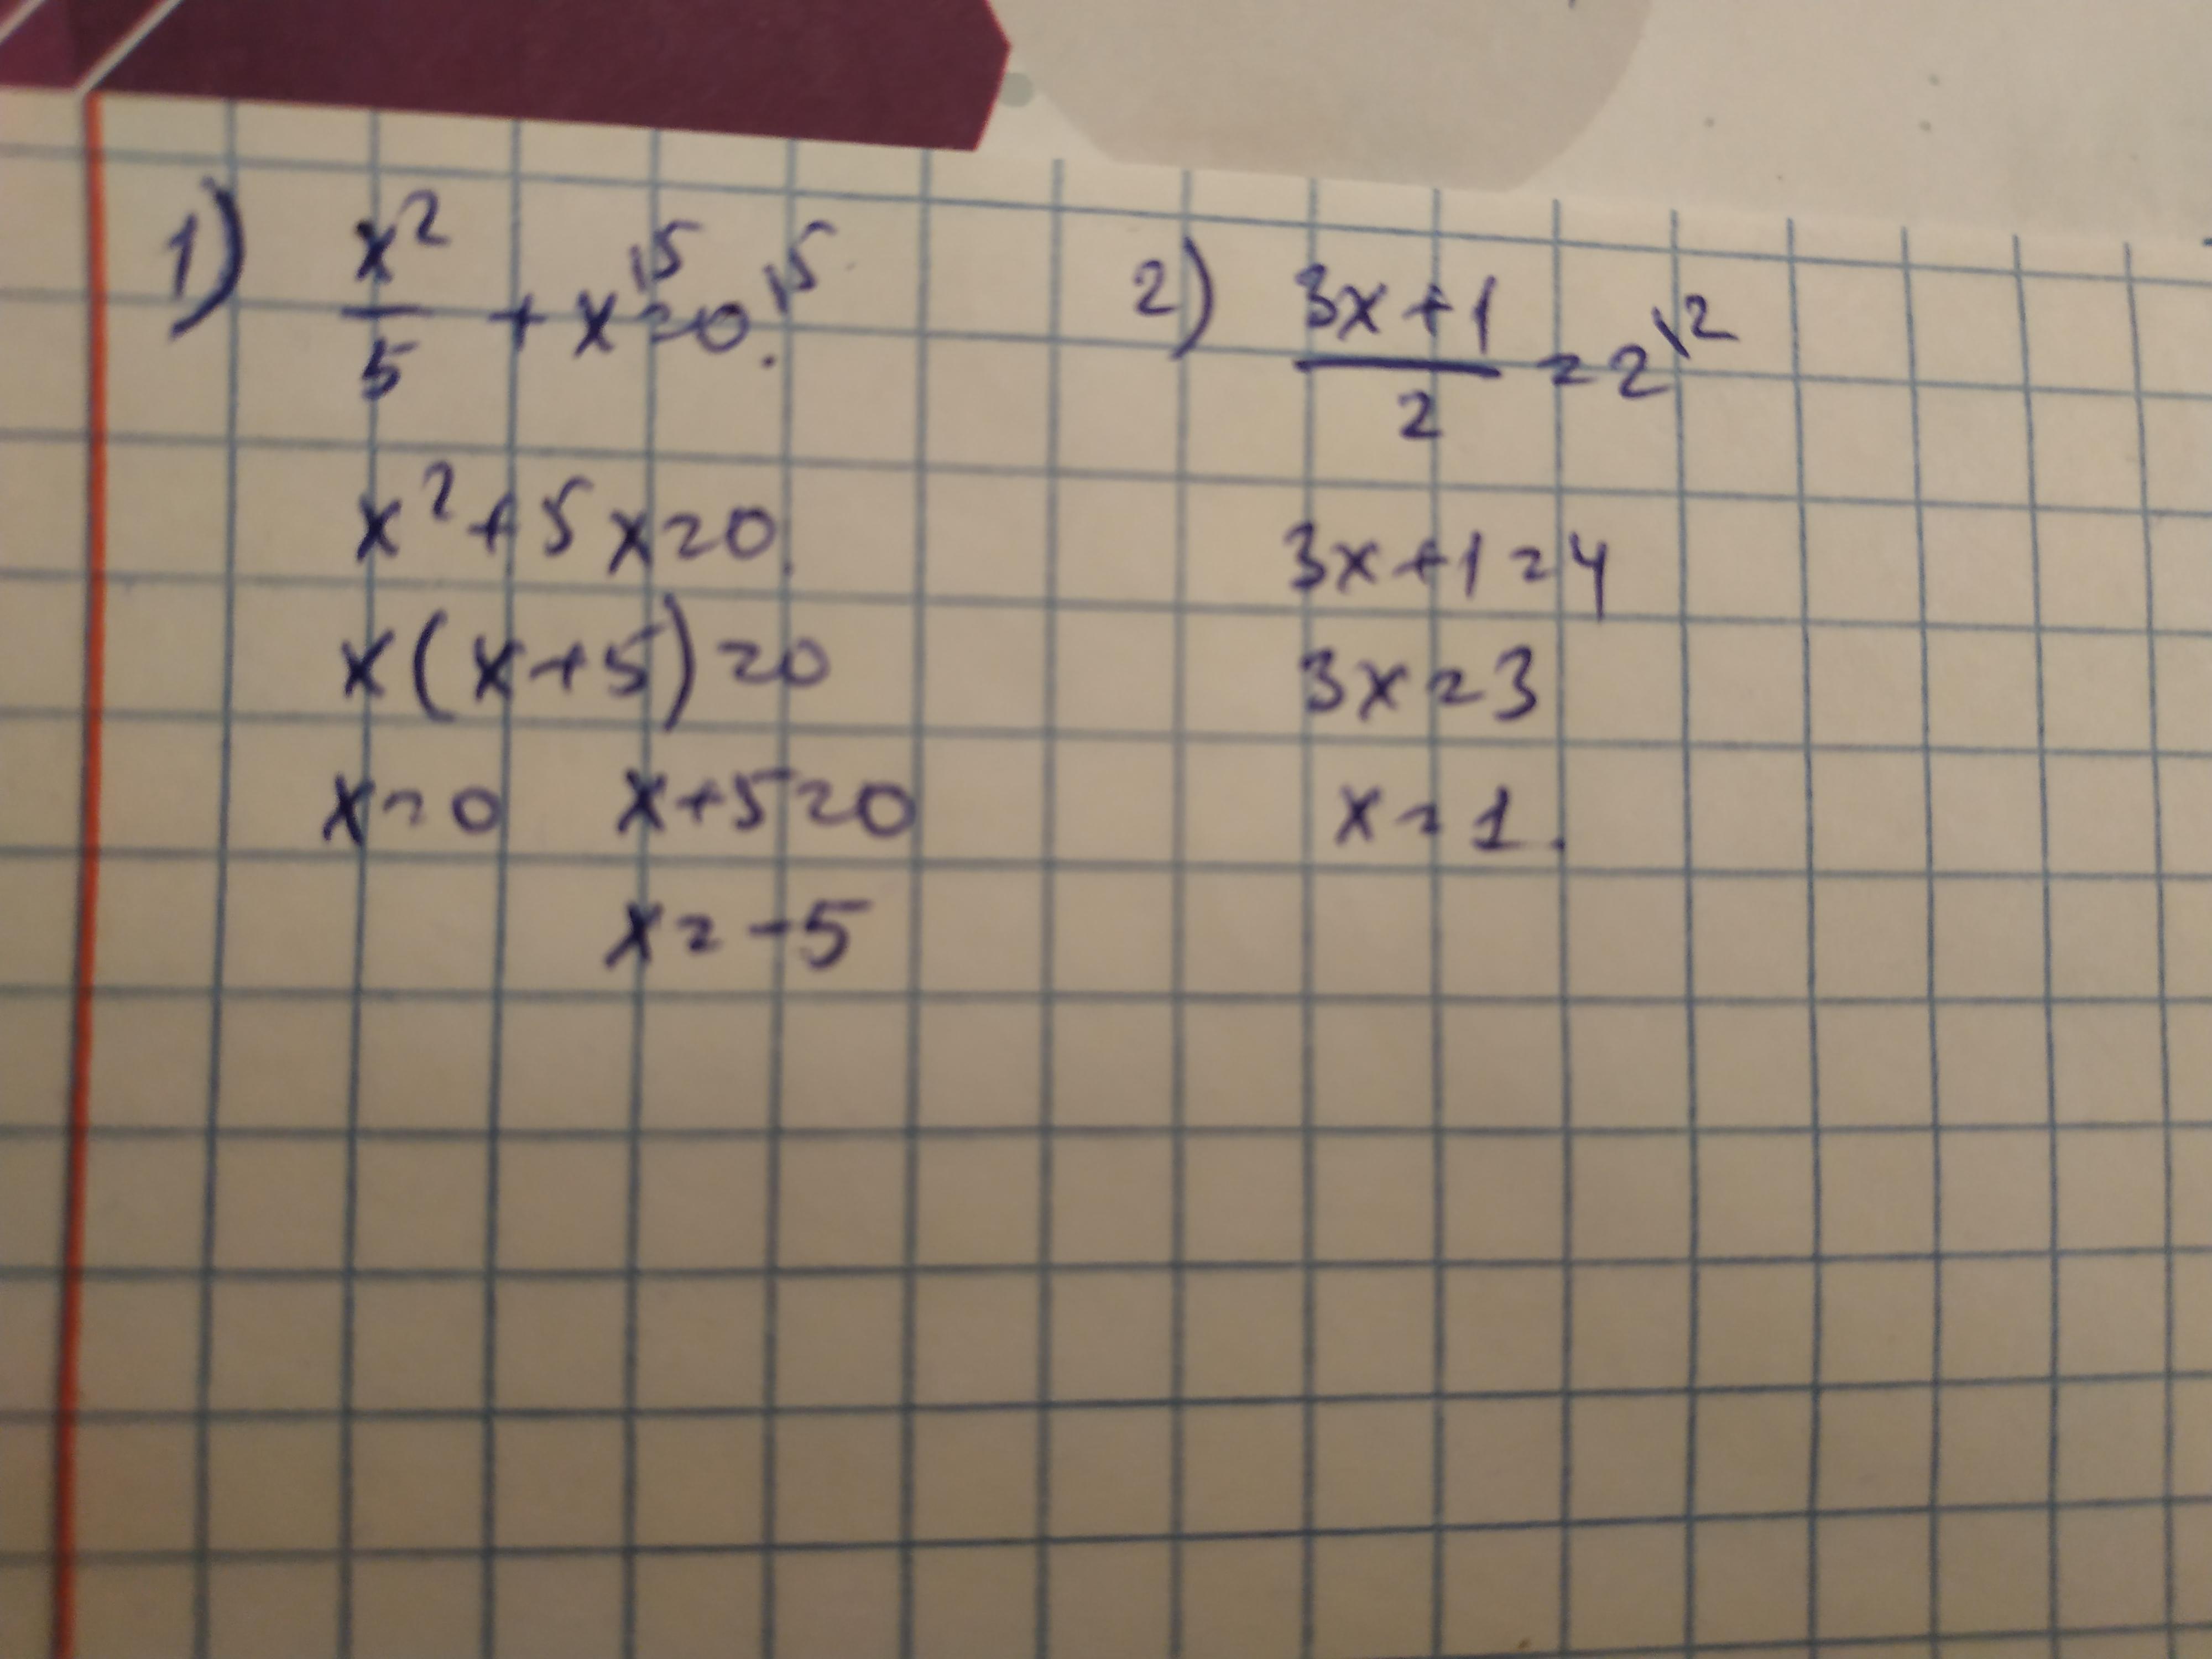 1) x²/5 + x\5 = 0\5.
x² + 5x = 0.
x(x+5) = 0
x = 0 x+5 = 0
x = -5
2) (3x+1)/2 = 2\2
3x+1 = 4
3x = 3
x = 1.